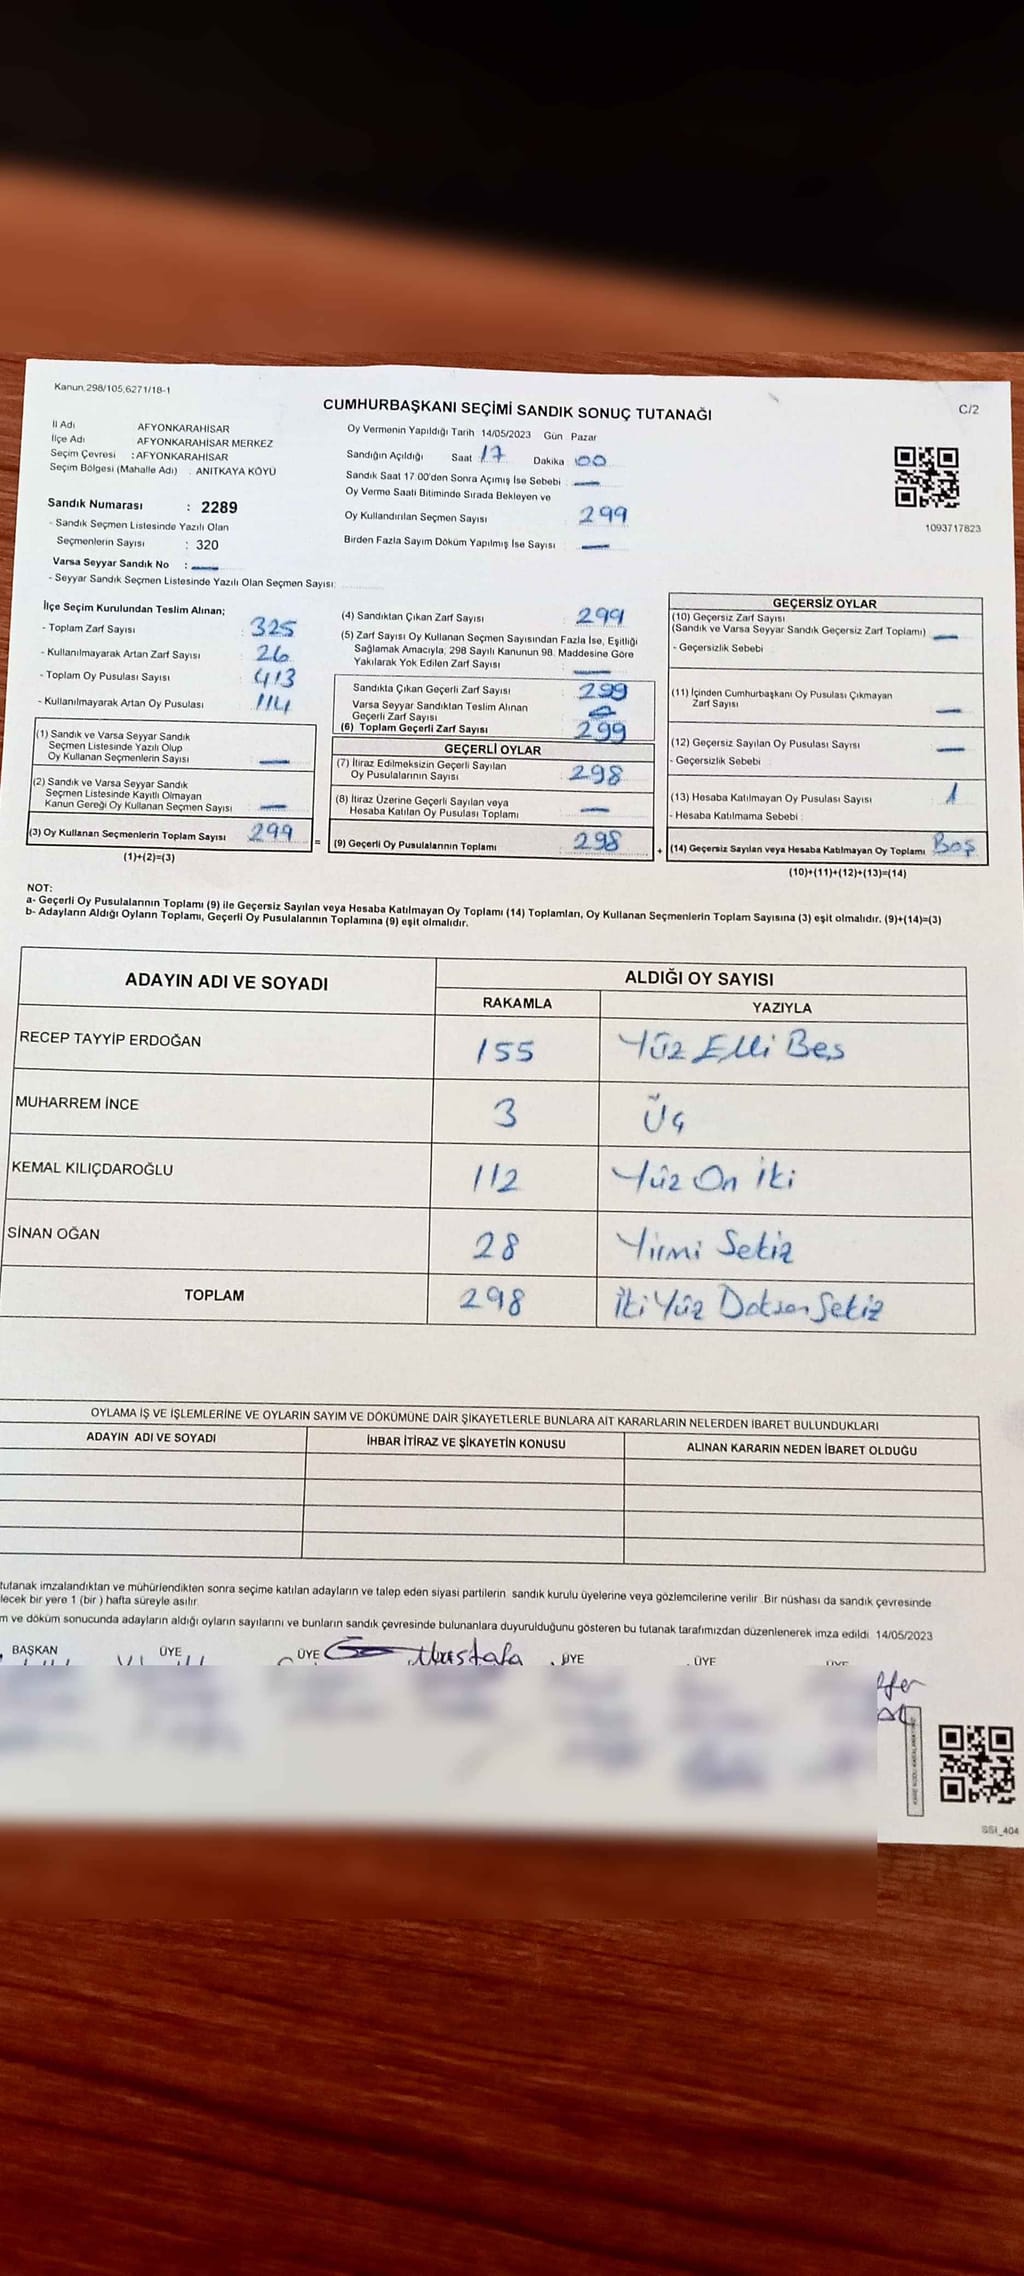 Kanun.298/105,6271/18-1
CUMHURBAŞKANI SEÇİMİ SANDIK SONUÇ TUTANAĞI
C/2
İl Adı AFYONKARAHİSAR
İlçe Adı AFYONKARAHİSAR MERKEZ
Seçim Çevresi : AFYONKARAHİSAR
Seçim Bölgesi (Mahalle Adı) : ANITKAYA KÖYÜ
Sandık Numarası : 2289
- Sandık Seçmen Listesinde Yazılı Olan
Seçmenlerin Sayısı : 320
Varsa Seyyar Sandık No : —
- Seyyar Sandık Seçmen Listesinde Yazılı Olan Seçmen Sayısı:
Oy Vermenin Yapıldığı Tarih 14/05/2023 Gün Pazar
Sandığın Açıldığı Saat 17 Dakika 00
Sandık Saat 17:00'den Sonra Açımış İse Sebebi : —
Oy Verme Saati Bitiminde Sırada Bekleyen ve
Oy Kullandırılan Seçmen Sayısı : 299
Birden Fazla Sayım Döküm Yapılmış İse Sayısı : —
1093717823
İlçe Seçim Kurulundan Teslim Alınan;
- Toplam Zarf Sayısı : 325
- Kullanılmayarak Artan Zarf Sayısı : 26
- Toplam Oy Pusulası Sayısı : 413
- Kullanılmayarak Artan Oy Pusulası : 114
(1) Sandık ve Varsa Seyyar Sandık
Seçmen Listesinde Yazılı Olup
Oy Kullanan Seçmenlerin Sayısı —
(2) Sandık ve Varsa Seyyar Sandık
Seçmen Listesinde Kayıtlı Olmayan
Kanun Gereği Oy Kullanan Seçmen Sayısı —
(3) Oy Kullanan Seçmenlerin Toplam Sayısı 299 =
(1)+(2)=(3)
(4) Sandıktan Çıkan Zarf Sayısı : 299
(5) Zarf Sayısı Oy Kullanan Seçmen Sayısından Fazla İse, Eşitliği
Sağlamak Amacıyla; 298 Sayılı Kanunun 98. Maddesine Göre
Yakılarak Yok Edilen Zarf Sayısı —
Sandıkta Çıkan Geçerli Zarf Sayısı : 299
Varsa Seyyar Sandıktan Teslim Alınan
Geçerli Zarf Sayısı
(6) Toplam Geçerli Zarf Sayısı 299
GEÇERLİ OYLAR
(7) İtiraz Edilmeksizin Geçerli Sayılan
Oy Pusulalarının Sayısı : 298
(8) İtiraz Üzerine Geçerli Sayılan veya
Hesaba Katılan Oy Pusulası Toplamı : —
(9) Geçerli Oy Pusulalarının Toplamı : 298 +
GEÇERSİZ OYLAR
(10) Geçersiz Zarf Sayısı
(Sandık ve Varsa Seyyar Sandık Geçersiz Zarf Toplamı) —
- Geçersizlik Sebebi
(11) İçinden Cumhurbaşkanı Oy Pusulası Çıkmayan
Zarf Sayısı —
(12) Geçersiz Sayılan Oy Pusulası Sayısı —
- Geçersizlik Sebebi
(13) Hesaba Katılmayan Oy Pusulası Sayısı 1
- Hesaba Katılmama Sebebi :
(14) Geçersiz Sayılan veya Hesaba Katılmayan Oy Toplamı Boş
(10)+(11)+(12)+(13)=(14)
NOT:
a- Geçerli Oy Pusulalarının Toplamı (9) ile Geçersiz Sayılan veya Hesaba Katılmayan Oy Toplamı (14) Toplamları, Oy Kullanan Seçmenlerin Toplam Sayısına (3) eşit olmalıdır. (9)+(14)=(3)
b- Adayların Aldığı Oyların Toplamı, Geçerli Oy Pusulalarının Toplamına (9) eşit olmalıdır.
ADAYIN ADI VE SOYADI ALDIĞI OY SAYISI
RAKAMLA YAZIYLA
RECEP TAYYİP ERDOĞAN 155 Yüz Elli Beş
MUHARREM İNCE 3 Üç
KEMAL KILIÇDAROĞLU 112 Yüz On İki
SİNAN OĞAN 28 Yirmi Sekiz
TOPLAM 298 İki Yüz Doksan Sekiz
OYLAMA İŞ VE İŞLEMLERİNE VE OYLARIN SAYIM VE DÖKÜMÜNE DAİR ŞİKAYETLERLE BUNLARA AİT KARARLARIN NELERDEN İBARET BULUNDUKLARI
ADAYIN ADI VE SOYADI İHBAR İTİRAZ VE ŞİKAYETİN KONUSU ALINAN KARARIN NEDEN İBARET OLDUĞU
tutanak imzalandıktan ve mühürlendikten sonra seçime katılan adayların ve talep eden siyasi partilerin sandık kurulu üyelerine veya gözlemcilerine verilir. Bir nüshası da sandık çevresinde
lecek bir yere 1 (bir ) hafta süreyle asılır.
m ve döküm sonucunda adayların aldığı oyların sayılarını ve bunların sandık çevresinde bulunanlara duyurulduğunu gösteren bu tutanak tarafımızdan düzenlenerek imza edildi. 14/05/2023
BAŞKAN ÜYE ÜYE Mustafa ÜYE ÜYE ÜYE
SSI_404